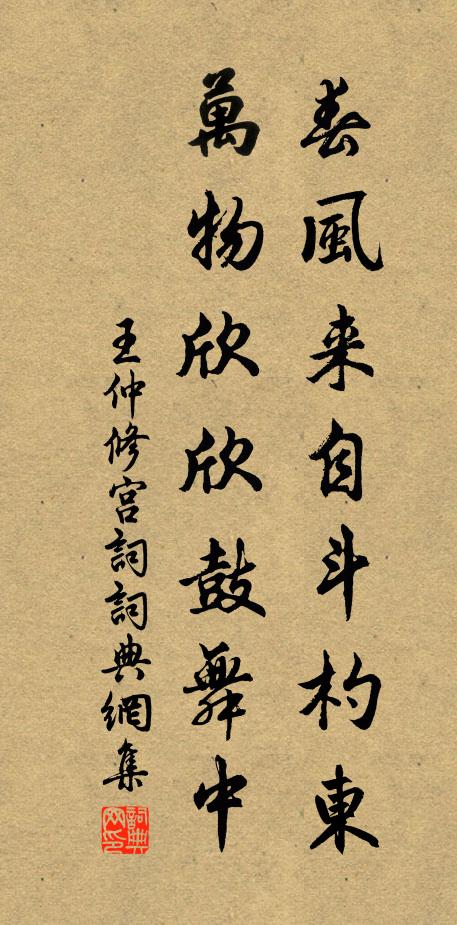 春風来自斗杓東
萬物欣欣鼓舞中
王仲修宫詞詞典網集
詞典网印